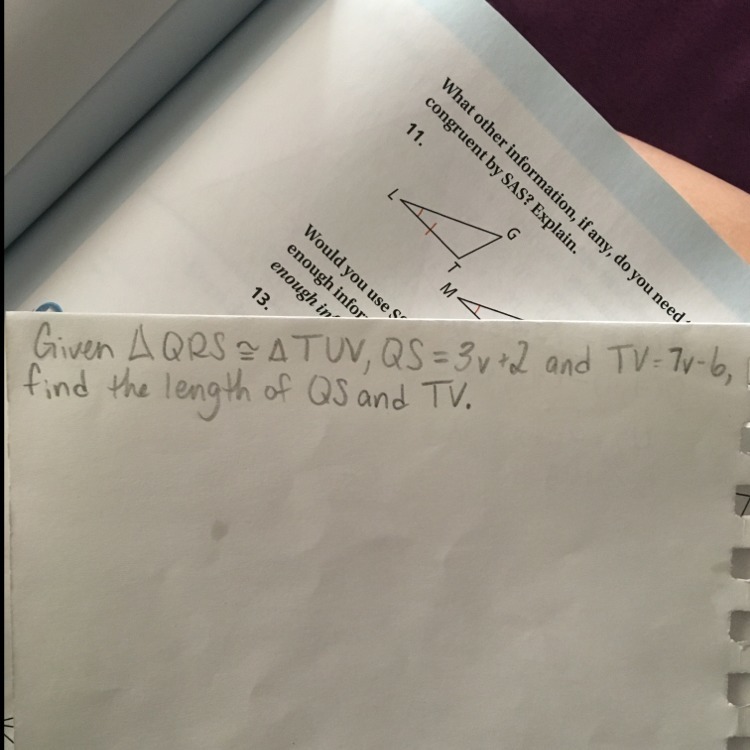 What other information, if any, do you need
congruent by SAS? Explain.
11.
L
G
T
M
Would you use
enough
enough
13.
Given △QRS ≅ △TUV, QS = 3v+2 and TV = 7v-6,
find the length of QS and TV.